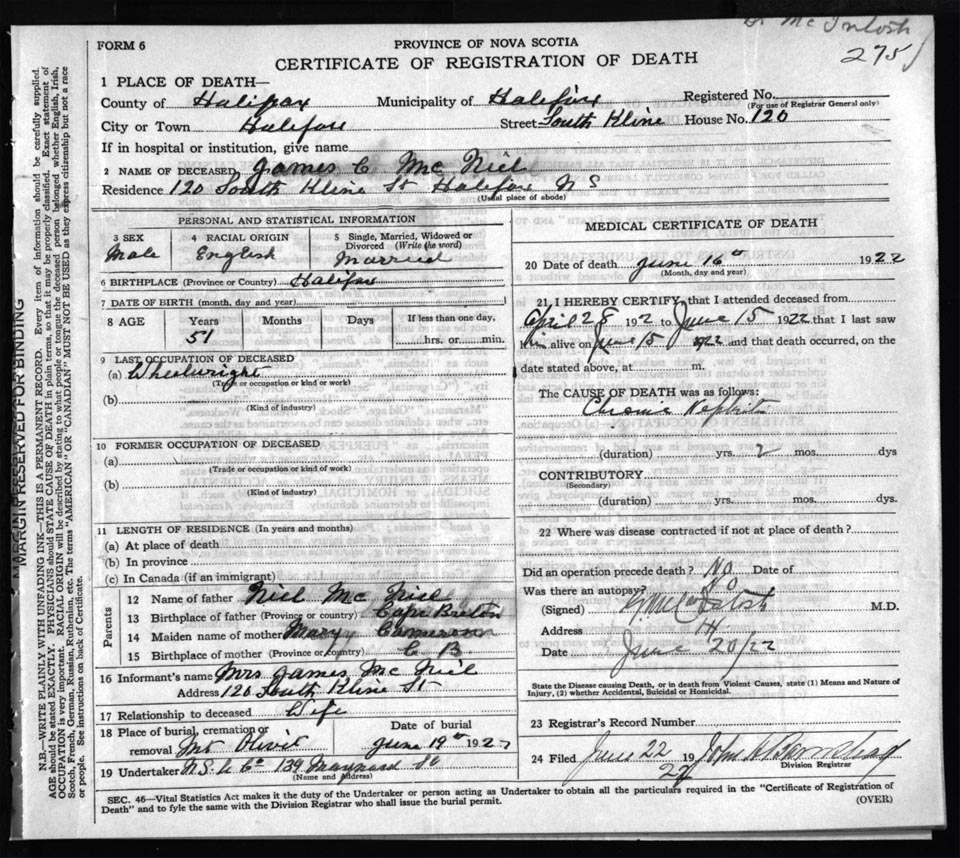 Dr McIntosh
275
FORM 6
PROVINCE OF NOVA SCOTIA
CERTIFICATE OF REGISTRATION OF DEATH
1 PLACE OF DEATH—
County of Halifax Municipality of Halifax Registered No.
(For use of Registrar General only)
City or Town Halifax Street South Kline House No. 120
If in hospital or institution, give name
2 NAME OF DECEASED James C McNiel
Residence 120 South Kline St Halifax N S
(Usual place of abode)
PERSONAL AND STATISTICAL INFORMATION
3 SEX Male
4 RACIAL ORIGIN English
5 Single, Married, Widowed or Divorced (Write the word) Married
6 BIRTHPLACE (Province or Country) Halifax
7 DATE OF BIRTH (month, day and year)
8 AGE Years Months Days If less than one day,
51 hrs. or min.
9 LAST OCCUPATION OF DECEASED
(a) Wheelwright
(Trade or occupation or kind or work)
(b)
(Kind of industry)
10 FORMER OCCUPATION OF DECEASED
(a)
(Trade or occupation or kind of work)
(b)
(Kind of industry)
11 LENGTH OF RESIDENCE (In years and months)
(a) At place of death
(b) In province
(c) In Canada (if an immigrant)
Parents
12 Name of father Niel McNiel
13 Birthplace of father (Province or country) Cape Breton
14 Maiden name of mother Mary Cameron
15 Birthplace of mother (Province or country) C B
16 Informant's name Mrs James McNiel
Address 120 South Kline St
17 Relationship to deceased Wife
18 Place of burial, cremation or removal Mt Olivit
Date of burial
June 19th 1922
19 Undertaker N.S. U Co 139 Maynard St
(Name and Address)
MEDICAL CERTIFICATE OF DEATH
20 Date of death June 16th 1922
(Month, day and year)
21 I HEREBY CERTIFY, that I attended deceased from
April 28 192 to June 15 1922 that I last saw
him alive on June 15 1922 and that death occurred, on the
date stated above, at m.
The CAUSE OF DEATH was as follows:
Chronic Nephritis
(duration) yrs. 2 mos. dys
CONTRIBUTORY
(Secondary)
(duration) yrs. mos. dys
22 Where was disease contracted if not at place of death?
Did an operation precede death? No Date of
Was there an autopsy? No
(Signed) McIntosh M.D.
Address H
Date June 20/22
State the Disease causing Death, or in death from Violent Causes, state (1) Means and Nature of
Injury, (2) whether Accidental, Suicidal or Homicidal.
23 Registrar's Record Number
24 Filed June 22 19 22 John
Division Registrar
SEC. 46—Vital Statistics Act makes it the duty of the Undertaker or person acting as Undertaker to obtain all the particulars required in the "Certificate of Registration of
Death" and to fyle the same with the Division Registrar who shall issue the burial permit.
(OVER)
MARGIN RESERVED FOR BINDING
N.B.—WRITE PLAINLY WITH UNFADING INK—THIS IS A PERMANENT RECORD. Every item of information should be carefully supplied.
AGE should be stated EXACTLY. PHYSICIANS should STATE CAUSE OF DEATH in plain terms, so that it may be properly classified. Exact statement of
OCCUPATION is very important. RACIAL ORIGIN will be described by stating to what people or tongue the deceased person belonged, whether English, Irish,
Scotch, French, German, Russian, Ruthenian, etc. The terms "AMERICAN" OR "CANADIAN" MUST NOT BE USED as they express citizenship but not a race
or people. See instructions on back of Certificate.